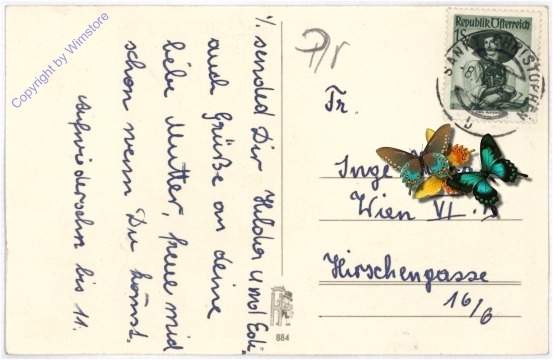 Copyright by Wimstore
%. sendet Dir Hilda und Edi.
auch Grüße an deine
liebe Mutter, freue mich
schon wenn Du kömst.
Aufwiedersehn bis 11.
Republik Österreich
1S
SANKT CHRISTOPHEN
Fr.
Inge
Wien VI.
Hirschengasse
16/6
884